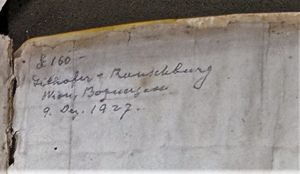 $ 160 -
Gilhofer & Ranschburg
Wien, Bognergasse
9. Dez. 1927.